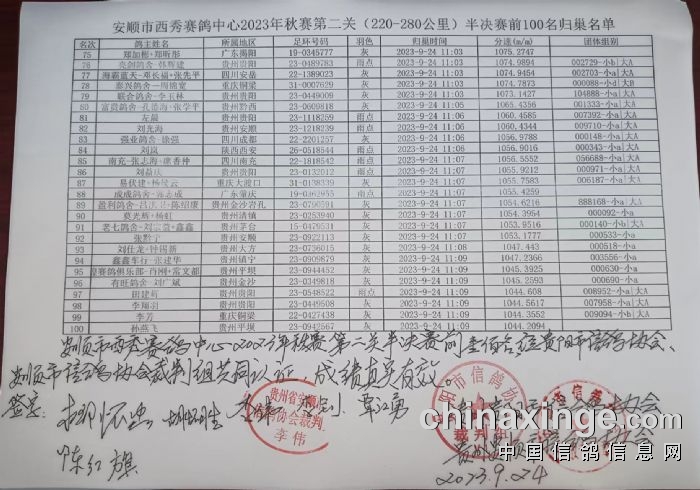 安顺市西秀赛鸽中心2023年秋赛第二关（220-280公里）半决赛前100名归巢名单
名次 鸽主姓名 所属地区 足环号码 羽色 归巢时间 分速(m/m) 团体组别
75 郑加彬+郑昕彤 广东揭阳 19-0345777 灰 2023-9-24 11:03 1075.2747
76 亮剑鸽舍-韩辉建 贵州贵阳 23-0489783 雨点 2023-9-24 11:03 1074.9894 002729-小b|大A
77 海霸蓝天-邓长福+张先平 四川安岳 22-1389023 灰 2023-9-24 11:03 1074.9454 002703-小a|大A
78 泰兴鸽舍-周锦宽 重庆铜梁 31-0007629 灰 2023-9-24 11:03 1074.7873 000088-小d|大B
79 联合鸽舍-李玉林 贵州贵阳 23-0449009 灰 2023-9-24 11:03 1073.1427 104888-小a|大A
80 富贵鸽舍-孔德海+张学平 贵州黔西 23-0609818 灰 2023-9-24 11:05 1065.4356 001333-小a|大A
81 左晨 贵州贵阳 23-1118259 雨点 2023-9-24 11:06 1060.4585 007392-小a|大A
82 刘光海 贵州安顺 23-1218239 雨点 2023-9-24 11:06 1060.4344 009710-小a|大A
83 强业鸽舍-徐强 四川成都 22-2201257 灰 2023-9-24 11:06 1056.9788 000148-小a|大B
84 刘岚 陕西西安 26-0518544 雨点 2023-9-24 11:06 1056.9144 000343-小a|大A
85 南充-张志海+席香仲 四川南充 22-1818542 雨点 2023-9-24 11:07 1056.5552 056688-小a|大A
86 刘益庆 贵州贵阳 23-0132012 雨点 2023-9-24 11:07 1056.0971 000571-小a|大A
87 易伏建+杨晓云 重庆大渡口 31-0138339 灰 2023-9-24 11:07 1055.7583 006187-小a|大A
88 成成鸽舍-郭志成 广东肇庆 19-0362955 雨点 2023-9-24 11:07 1055.4259
89 贵州金沙岩孔 23-0790591 灰 2023-9-24 11:07 1054.6216 888168-小a|大A
90 莫光辉+杨虹 贵州清镇 23-0253940 灰 2023-9-24 11:07 1054.3954 000092-小a
91 老七鸽舍-刘宗益+鑫鑫 贵州茅台 15-0479531 灰 2023-9-24 11:07 1053.9516 000140-小b|大A
92 张黔宁 贵州安顺 23-0922113 灰 2023-9-24 11:07 1053.1777 000533-小a
93 刘仕龙+钟锡新 贵州大方 23-0736015 灰 2023-9-24 11:08 1047.443 000518-小a
94 鑫鑫车行-张建华 贵州镇宁 23-0909879 灰 2023-9-24 11:09 1046.2366 000556-小a
95 贵州平坝 23-0944452 灰 2023-9-24 11:09 1045.3925 000630-小a
96 有旺鸽舍-刘广斌 贵州金沙 23-0349818 灰 2023-9-24 11:09 1045.2593
97 田建荀 贵州贵阳 23-0548522 雨点 2023-9-24 11:09 1044.6608 008952-小a|大A
98 李翔羽 贵州贵阳 23-0449508 灰 2023-9-24 11:09 1044.5612 007958-小a|大A
99 李芳 重庆铜梁 22-0427438 灰 2023-9-24 11:09 1044.2709 000094-小b|大A
100 孙燕飞 贵州平坝 23-0942567 灰 2023-9-24 11:09 1044.2694
安顺市西秀赛鸽中心2023年秋赛第二关半决赛前壹佰名经贵阳市信鸽协会、
安顺市信鸽协会裁判组共同认证，成绩真实有效。
签字：
覃江勇
陈红旗
贵州省安顺
协会裁判
李伟
阳市信鸽协
裁判
chinaxinge.com
中国信鸽信息网
2023.9.24